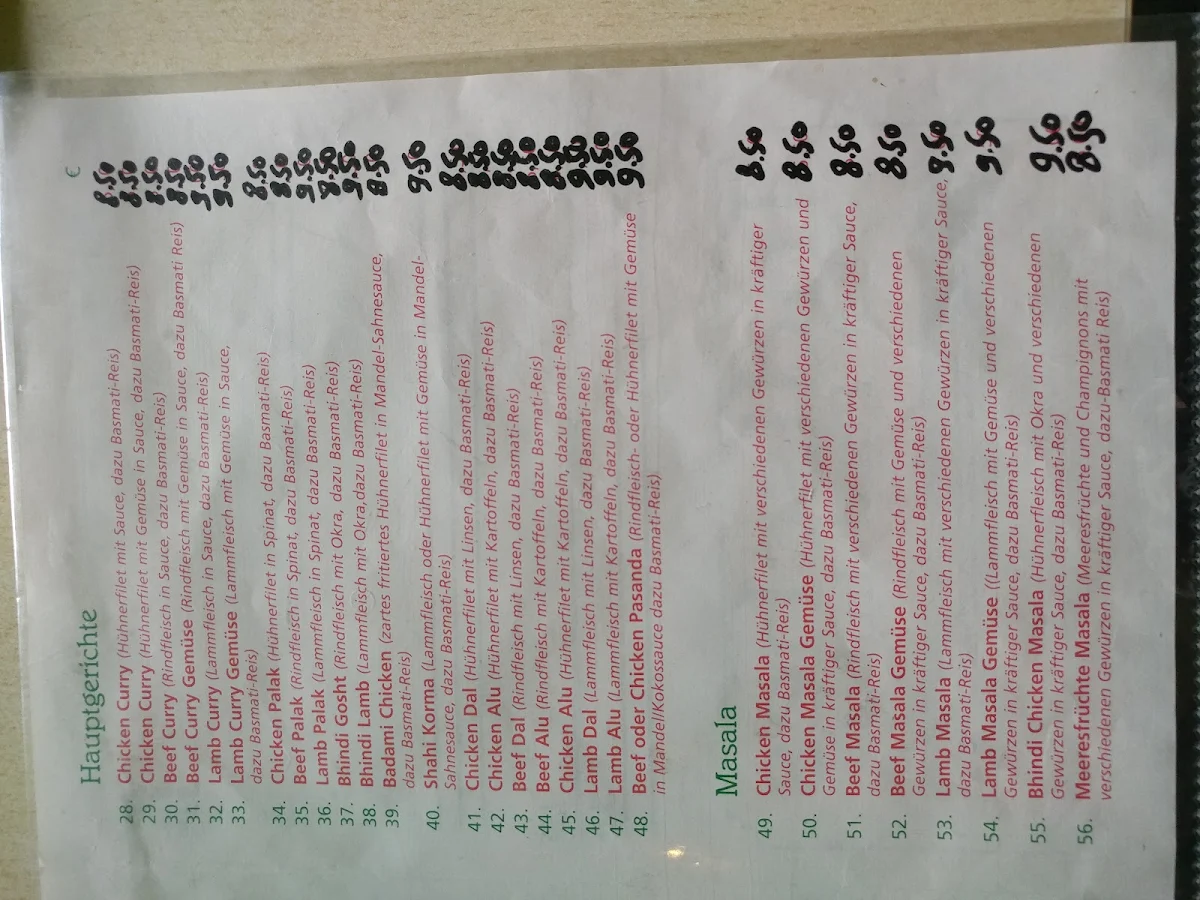 Hauptgerichte €
28. Chicken Curry (Hühnerfilet mit Sauce, dazu Basmati-Reis) 8.50
29. Chicken Curry (Hühnerfilet mit Gemüse in Sauce, dazu Basmati-Reis) 8.50
30. Beef Curry (Rindfleisch in Sauce, dazu Basmati-Reis) 8.50
31. Beef Gemüse (Rindfleisch mit Gemüse in Sauce, dazu Basmati Reis) 8.50
32. Lamb Curry (Lammfleisch in Sauce, dazu Basmati-Reis) 9.50
33. Lamb Curry Gemüse (Lammfleisch mit Gemüse in Sauce, 9.50
dazu Basmati-Reis)
34. Chicken Palak (Hühnerfilet in Spinat, dazu Basmati-Reis) 8.50
35. Beef Palak (Rindfleisch in Spinat, dazu Basmati-Reis) 8.50
36. Lamb Palak (Lammfleisch in Spinat, dazu Basmati-Reis) 9.50
37. Bhindi Gosht (Rindfleisch mit Okra, dazu Basmati-Reis) 8.50
38. Bhindi Lamb (Lammfleisch mit Okra,dazu Basmati-Reis) 9.50
39. Badami Chicken (zartes fritiertes Hühnerfilet in Mandel-Sahnesauce, 8.50
dazu Basmati-Reis)
40. Shahi Korma (Lammfleisch oder Hühnerfilet mit Gemüse in Mandel- 9.50
Sahnesauce, dazu Basmati-Reis)
41. Chicken Dal (Hühnerfilet mit Linsen, dazu Basmati-Reis) 8.50
42. Chicken Alu (Hühnerfilet mit Kartoffeln, dazu Basmati-Reis) 8.50
43. Beef Dal (Rindfleisch mit Linsen, dazu Basmati-Reis) 8.50
44. Beef Alu (Rindfleisch mit Kartoffeln, dazu Basmati-Reis) 8.50
45. Chicken Alu (Hühnerfilet mit Kartoffeln, dazu Basmati-Reis) 8.50
46. Lamb Dal (Lammfleisch mit Linsen, dazu Basmati-Reis) 9.50
47. Lamb Alu (Lammfleisch mit Kartoffeln, dazu Basmati-Reis) 9.50
48. Beef oder Chicken Pasanda (Rindfleisch- oder Hühnerfilet mit Gemüse 9.50
in Mandel/Kokossauce dazu Basmati-Reis)
Masala
49. Chicken Masala (Hühnerfilet mit verschiedenen Gewürzen in kräftiger 8.50
Sauce, dazu Basmati-Reis)
50. Chicken Masala Gemüse (Hühnerfilet mit verschiedenen Gewürzen und 8.50
Gemüse in kräftiger Sauce, dazu Basmati-Reis)
51. Beef Masala (Rindfleisch mit verschiedenen Gewürzen in kräftiger Sauce, 8.50
dazu Basmati-Reis)
52. Beef Masala Gemüse (Rindfleisch mit Gemüse und verschiedenen 8.50
Gewürzen in kräftiger Sauce, dazu Basmati-Reis)
53. Lamb Masala (Lammfleisch mit verschiedenen Gewürzen in kräftiger Sauce, 9.50
dazu Basmati-Reis)
54. Lamb Masala Gemüse ((Lammfleisch mit Gemüse und verschiedenen 9.50
Gewürzen in kräftiger Sauce, dazu Basmati-Reis)
55. Bhindi Chicken Masala (Hühnerfleisch mit Okra und verschiedenen 9.50
Gewürzen in kräftiger Sauce, dazu Basmati-Reis)
56. Meeresfrüchte Masala (Meeresfrüchte und Champignons mit 8.50
verschiedenen Gewürzen in kräftiger Sauce, dazu-Basmati Reis)